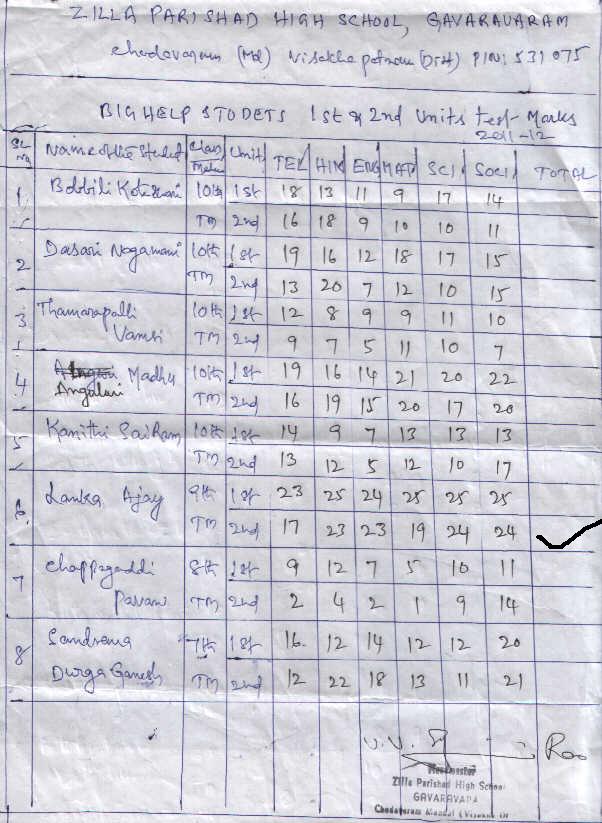 ZILLA PARISHAD HIGH SCHOOL, GAVARAVARAM
Chodavaram (Md) Visakhapatnam (Dist) PIN: 531075
BIGHELP STODETS 1st & 2nd Units test Marks
2011-12
SL No Name of the Student Class Units TEL HIN ENG MAT SCI SOCI TOTAL
1 Bobbili 10th 1st 18 13 11 9 17 14
TM 2nd 16 18 9 10 10 11
2 Dasari Nagamani 10th 1st 19 16 12 18 17 15
TM 2nd 13 20 7 12 10 15
3 Thamarapalli 10th 1st 12 8 9 9 11 10
Vamsi TM 2nd 9 7 5 11 10 7
4 Madhu 10th 1st 19 16 14 21 20 22
Angalari TM 2nd 16 19 15 20 17 20
5 Kamithi SaiRam 10th 1st 14 9 7 13 13 13
TM 2nd 13 12 5 12 10 17
6. Lanka Ajay 9th 1st 23 25 24 25 25 25
TM 2nd 17 23 23 19 24 24
7 Chappagaddi 8th 1st 9 12 7 5 10 11
Pavani TM 2nd 2 4 2 1 9 14
8 7th 1st 16. 12 14 12 12 20
Durga Ganesh TM 2nd 12 22 18 13 11 21
V.V. Rao
Zilla Parishad High School
GAVARAVARA
Chodavaram Mandal